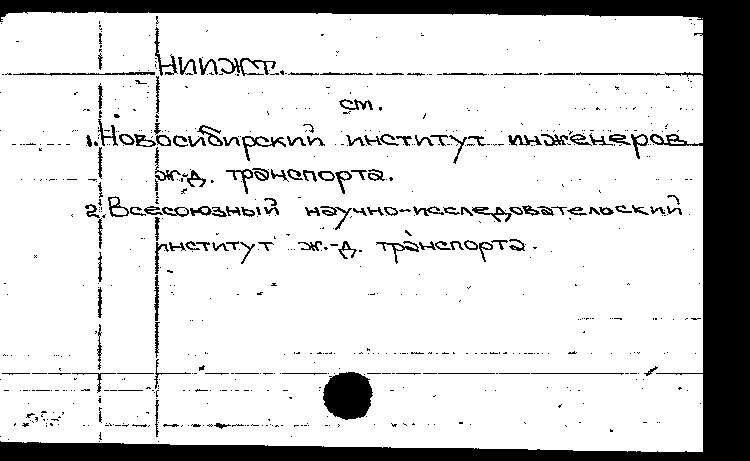 НИИЖТ.
см.
1. Новосибирский институт инженеров
ж.-д. транспорта.
2. Всесоюзный научно-исследовательский
институт ж.-д. транспорта.